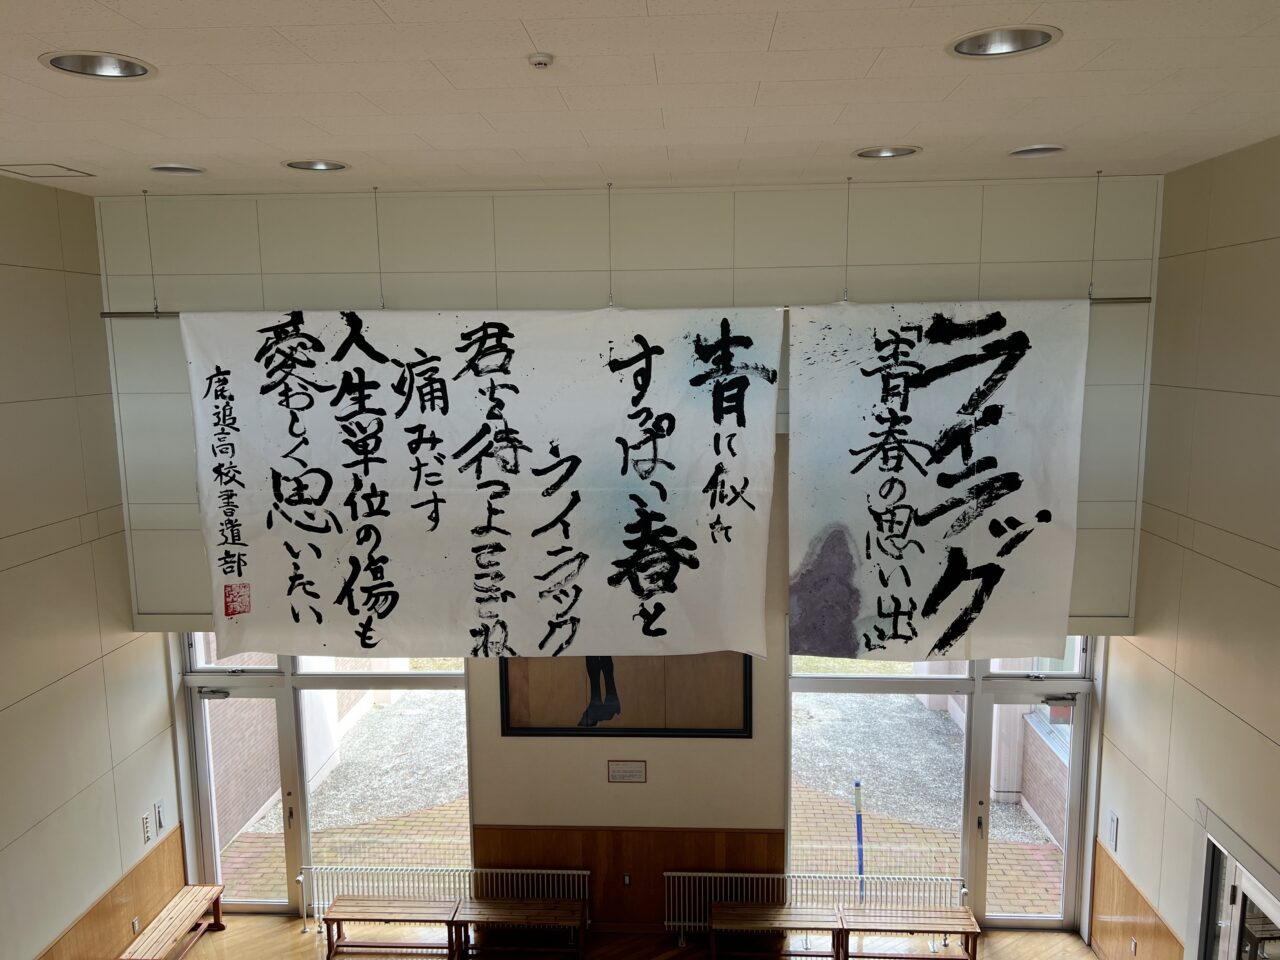 ライラック
「青春の思い出」
青に似た
すっぱい春と
ライラック
君を待つよここでね
痛みだす
人生単位の傷も
愛おしく思いたい
鹿追高校書道部